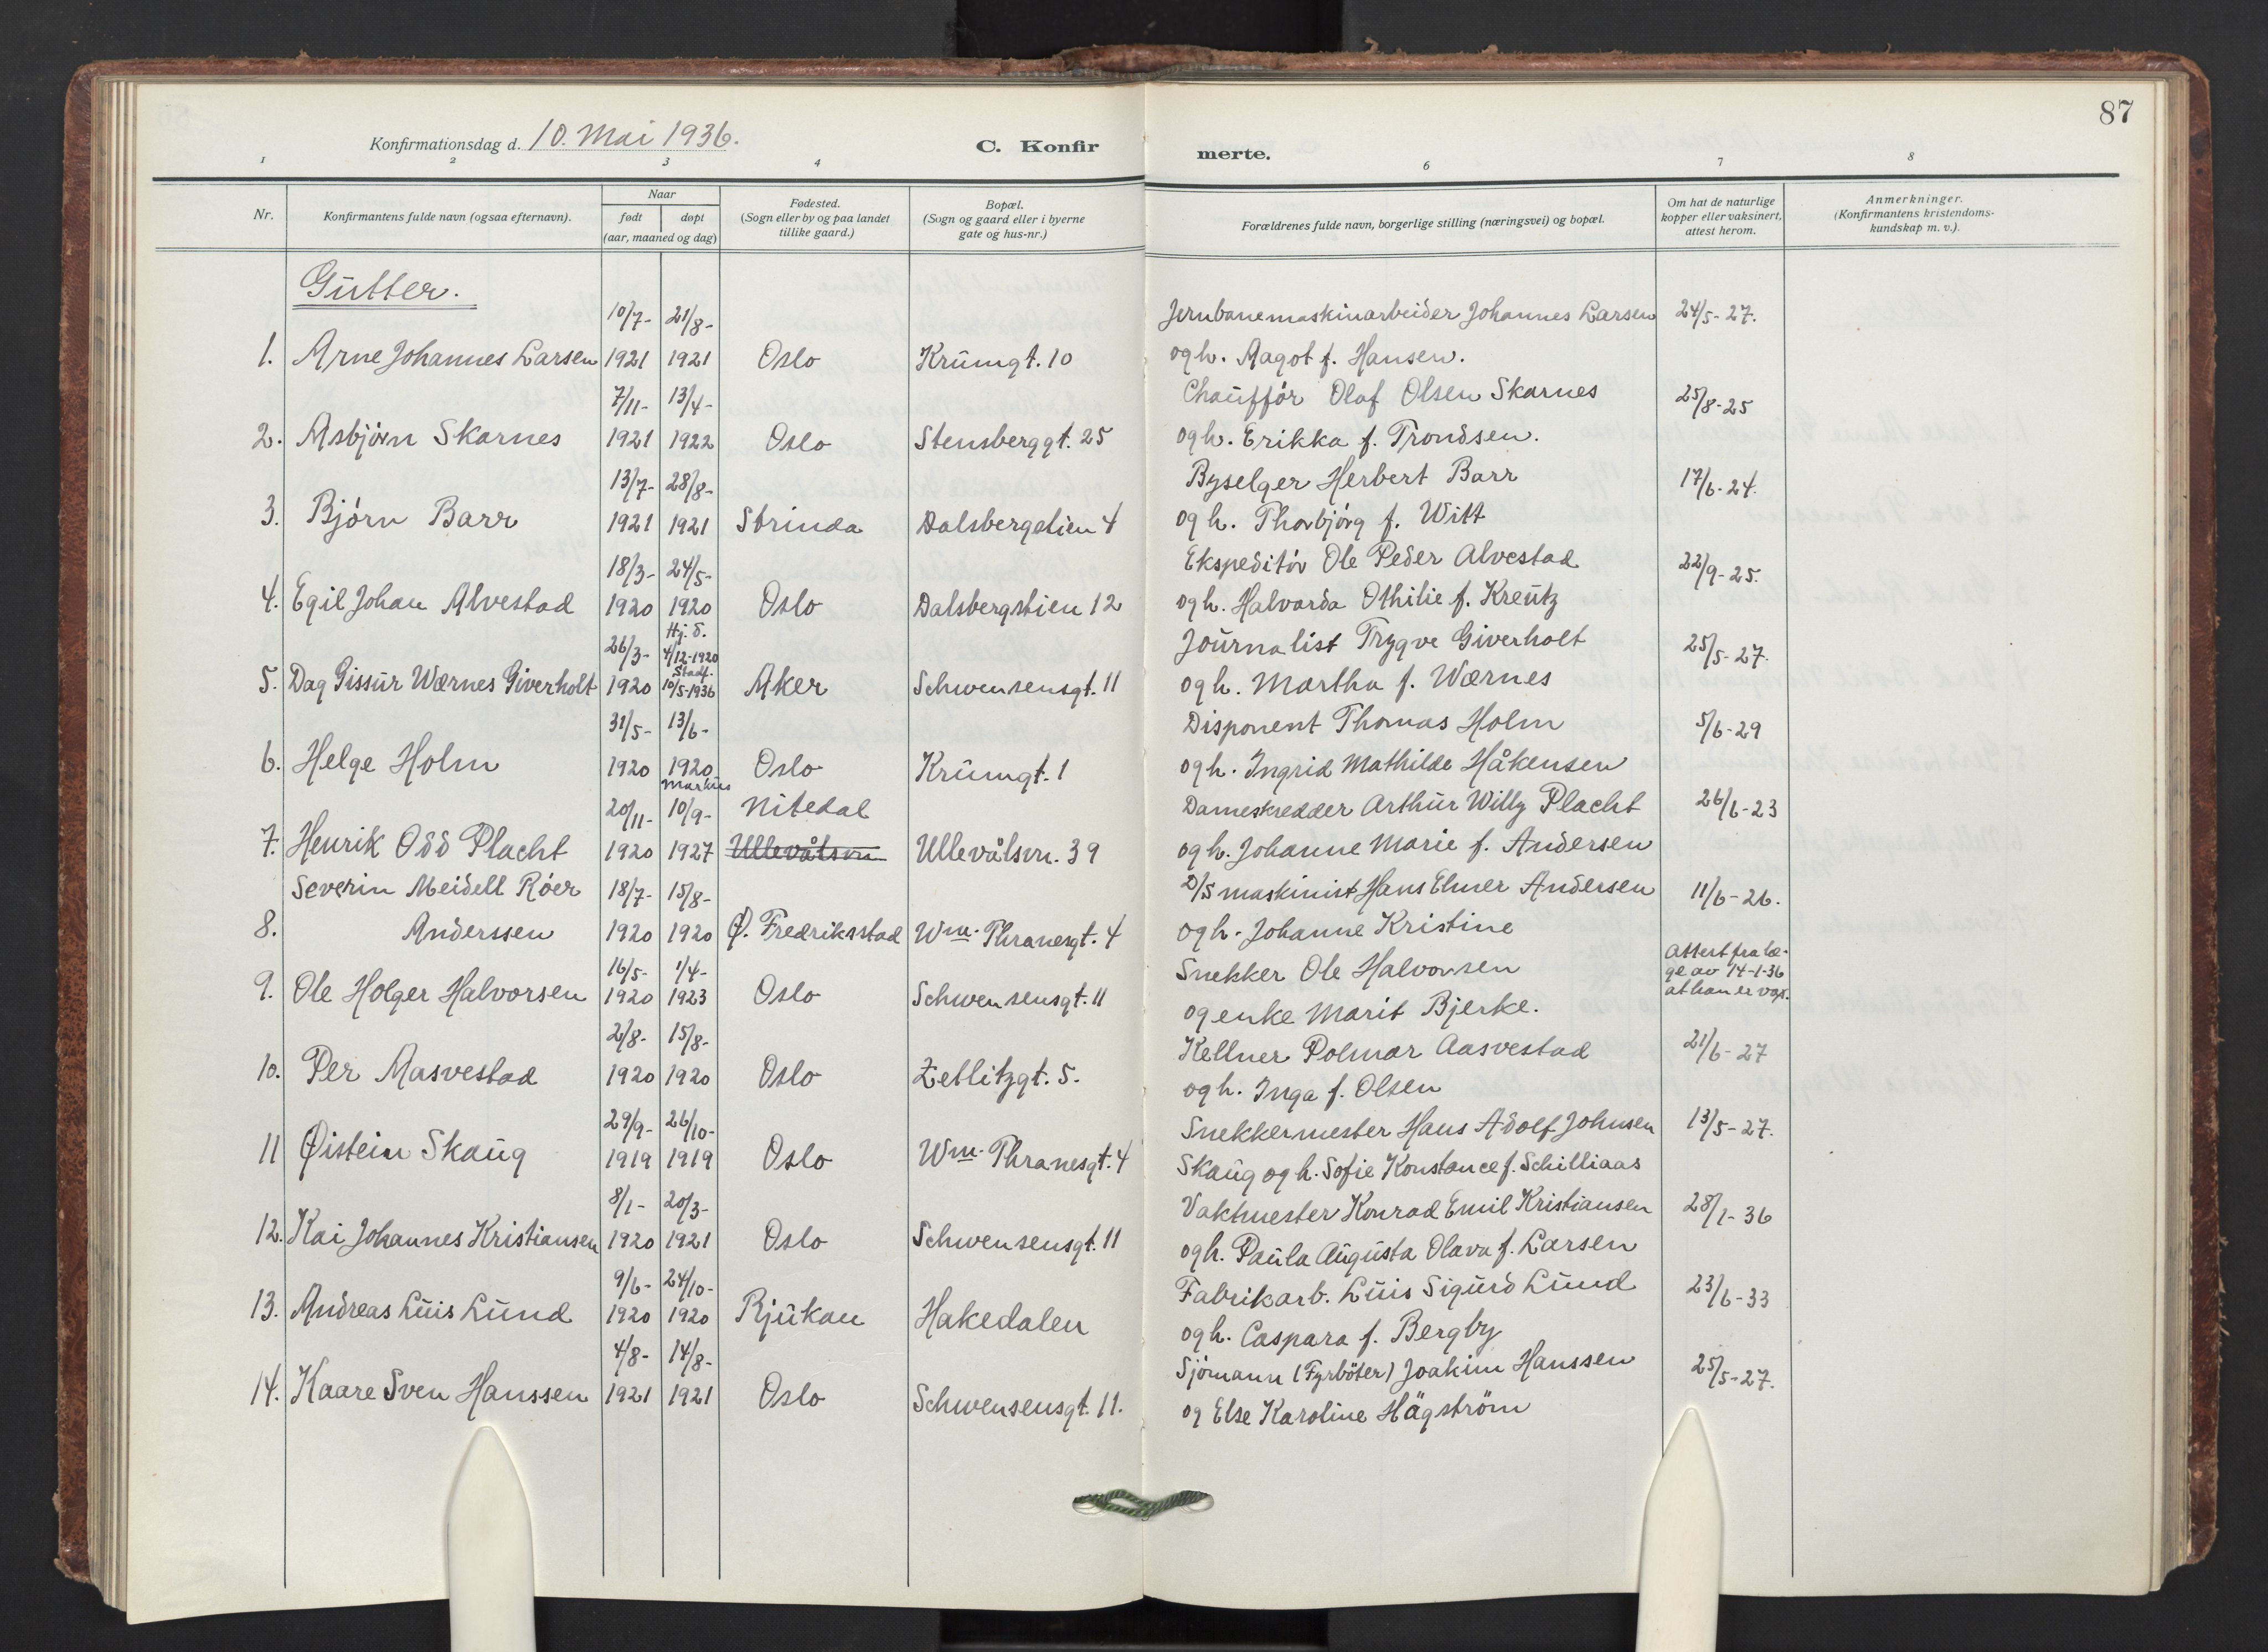 87
Konfirmationsdag d. 10. Mai 1936.
C. Konfir merte.
1 2 3 4 6 7 8
Nr.
Konfirmantens fulde navn (ogsaa efternavn).
Naar
født døpt
(aar, maaned og dag)
Fødested.
(Sogn eller by og paa landet
tillike gaard.)
Bopæl.
(Sogn og gaard eller i byerne
gate og hus-nr.)
Forældrenes fulde navn, borgerlige stilling (næringsvei) og bopæl.
Om hat de naturlige
kopper eller vaksinert,
attest herom.
Anmerkninger.
(Konfirmantens kristendoms-
kundskap m. v.).
Gutter.
10/7- 21/8- Jernbanemaskinarbeider Johannes Larsen 24/5-27.
1. Arne Johannes Larsen 1921 1921 Oslo Krumgt. 10 og h. Aagot f. Hansen.
7/11- 13/4- Chauffør Olaf Olsen Skarnes 25/8-25
2. Asbjørn Skarnes 1921 1922 Oslo Stensberggt. 25 og h. Erikka f. Trondsen.
13/7- 28/8- Byselger Herbert Barr 17/6-24.
3. Bjørn Barr 1921 1921 Strinda Dalsbergstien 4 og h. Thorbjørg f. Witt
18/3- 24/5- Ekspeditør Ole Peder Alvestad 22/9-25.
4. Egil Johan Alvestad 1920 1920 Oslo Dalsbergstien 12 og h. Halvarda Othilie f. Kreutz
26/3- Hj. d. 4/12-1920 Journalist Trygve Giverholt 25/5-27.
5. Dag Gissur Wærnes Giverholt 1920 Stadf. 10/5-1936 Aker Schwensensgt. 11 og h. Martha f. Wærnes
31/5- 13/6- Disponent Thomas Holm 5/6-29
6. Helge Holm 1920 1920 Oslo Krumgt. 1 og h. Ingrid Mathilde Håkensen
Markus
20/11- 10/9- Nitedal Dameskredder Arthur Willy Placht 26/6-23
7. Henrik Odd Placht 1920 1927 Ullevålsvn Ullevålsvn. 39 og h. Johanne Marie f. Andersen
Severin Meidell Röer 18/7- 15/8- D/S maskinist Hans Elmer Andersen 11/6-26.
8. Anderssen 1920 1920 Ø. Fredriksstad Wm. Thranesgt. 4 og h. Johanne Kristine
16/5- 1/4- Snekker Ole Halvorsen Attest fra læ-
ge av 14-1-36
at han er vax.
9. Ole Holger Halvorsen 1920 1923 Oslo Schwensensgt. 11 og enke Marit Bjerke.
2/8- 15/8- Kellner Polmar Aasvestad 21/6-27
10. Per Aasvestad 1920 1920 Oslo Zetlitzgt. 5. og h. Inga f. Olsen
29/9- 26/10- Snekkermester Hans Adolf Johnsen 13/5-27.
11 Øistein Skaug 1919 1919 Oslo Wm. Thranesgt. 4 Skaug og h. Sofie Konstance f. Schilliaas
8/1- 20/3- Vaktmester Konrad Emil Kristiansen 28/1-36
12. Kai Johannes Kristiansen 1920 1921 Oslo Schwensensgt. 11 og h. Paula Augusta Olava f. Larsen
9/6- 24/10- Fabrikarb. Luis Sigurd Lund 23/6-33
13. Andreas Luis Lund 1920 1920 Rjukan Hakedalen og h. Caspara f. Bergby
4/8- 14/8- Sjömann (Fyrböter) Joakim Hanssen 25/5-27.
14. Kaare Sven Hanssen 1921 1921 Oslo Schwensensgt. 11. og Else Karoline Hägström